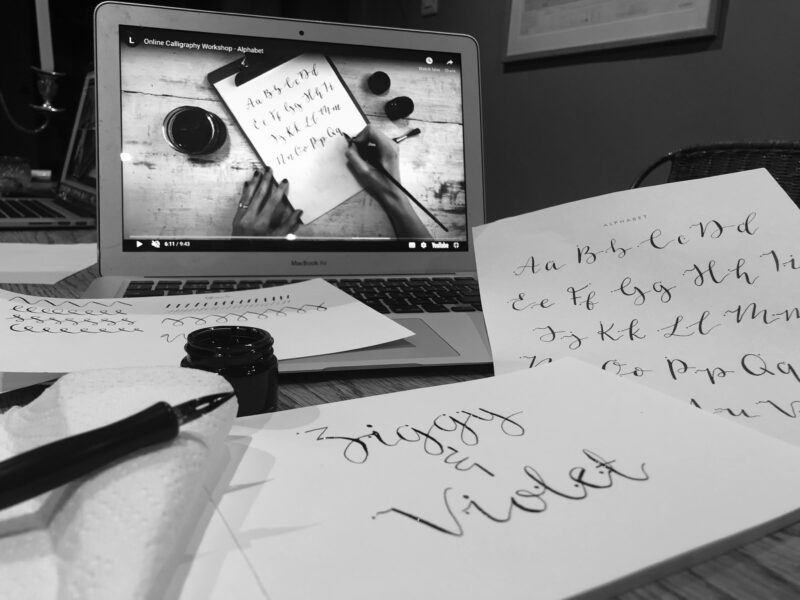 L Online Calligraphy Workshop - Alphabet
Aa Bb Cc Dd
Ee Ff Gg Hh Ii
Jj Kk Ll Mm
Nn Oo Pp Qq
6:11 / 9:43
YouTube
MacBook Air
ALPHABET
Aa Bb Cc Dd
Ee Ff Gg Hh Ii
Jj Kk Ll Mm
Oo Pp Qq
Ziggy
&
Violet